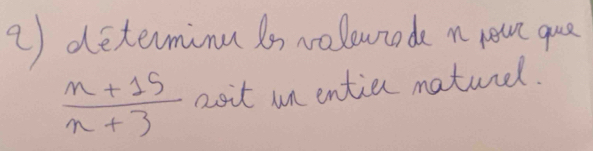 2) déterminer les valeurs de n pour que
n + 15
n + 3
soit un entier naturel.